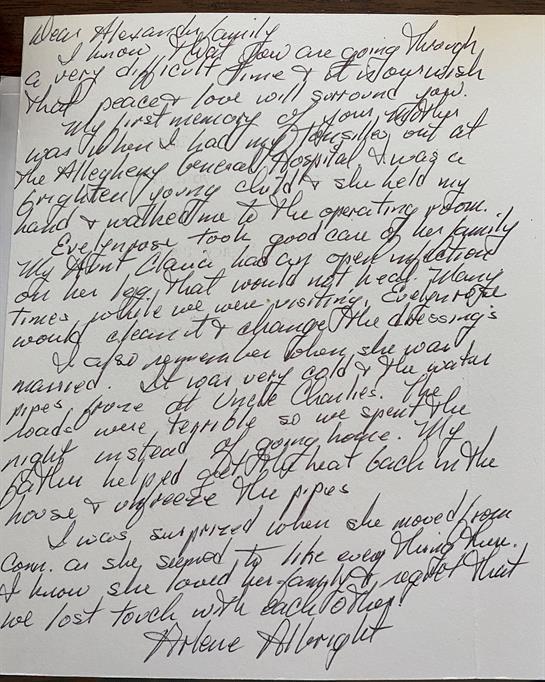 Dear Alexandr family
I know that you are going through
a very difficult time & it is our wish
that peace & love will surround you.
My first memory of your mother
was when I had my tonsilles out at
the Allegheny General Hospital. I was a
frighten young child & she held my
hand & walked me to the operating room.
Evelynrose took good care of her family
My Aunt Clara had an open infection
on her leg that would not heal. Many
times while we were visiting, Evelynrose
would clean it & change the dressing's
I also remember when she was
married. It was very cold & the water
pipes froze at Uncle Charlies. The
roads were terrible so we spent the
night instead of going home. My
Father helped get the heat back in the
house & unfreeze the pipes
I was surprized when she moved from
Conn. as she seemed to like every thing there.
I know she loved her family & regret that
we lost touch with each other.
Arlene Albright